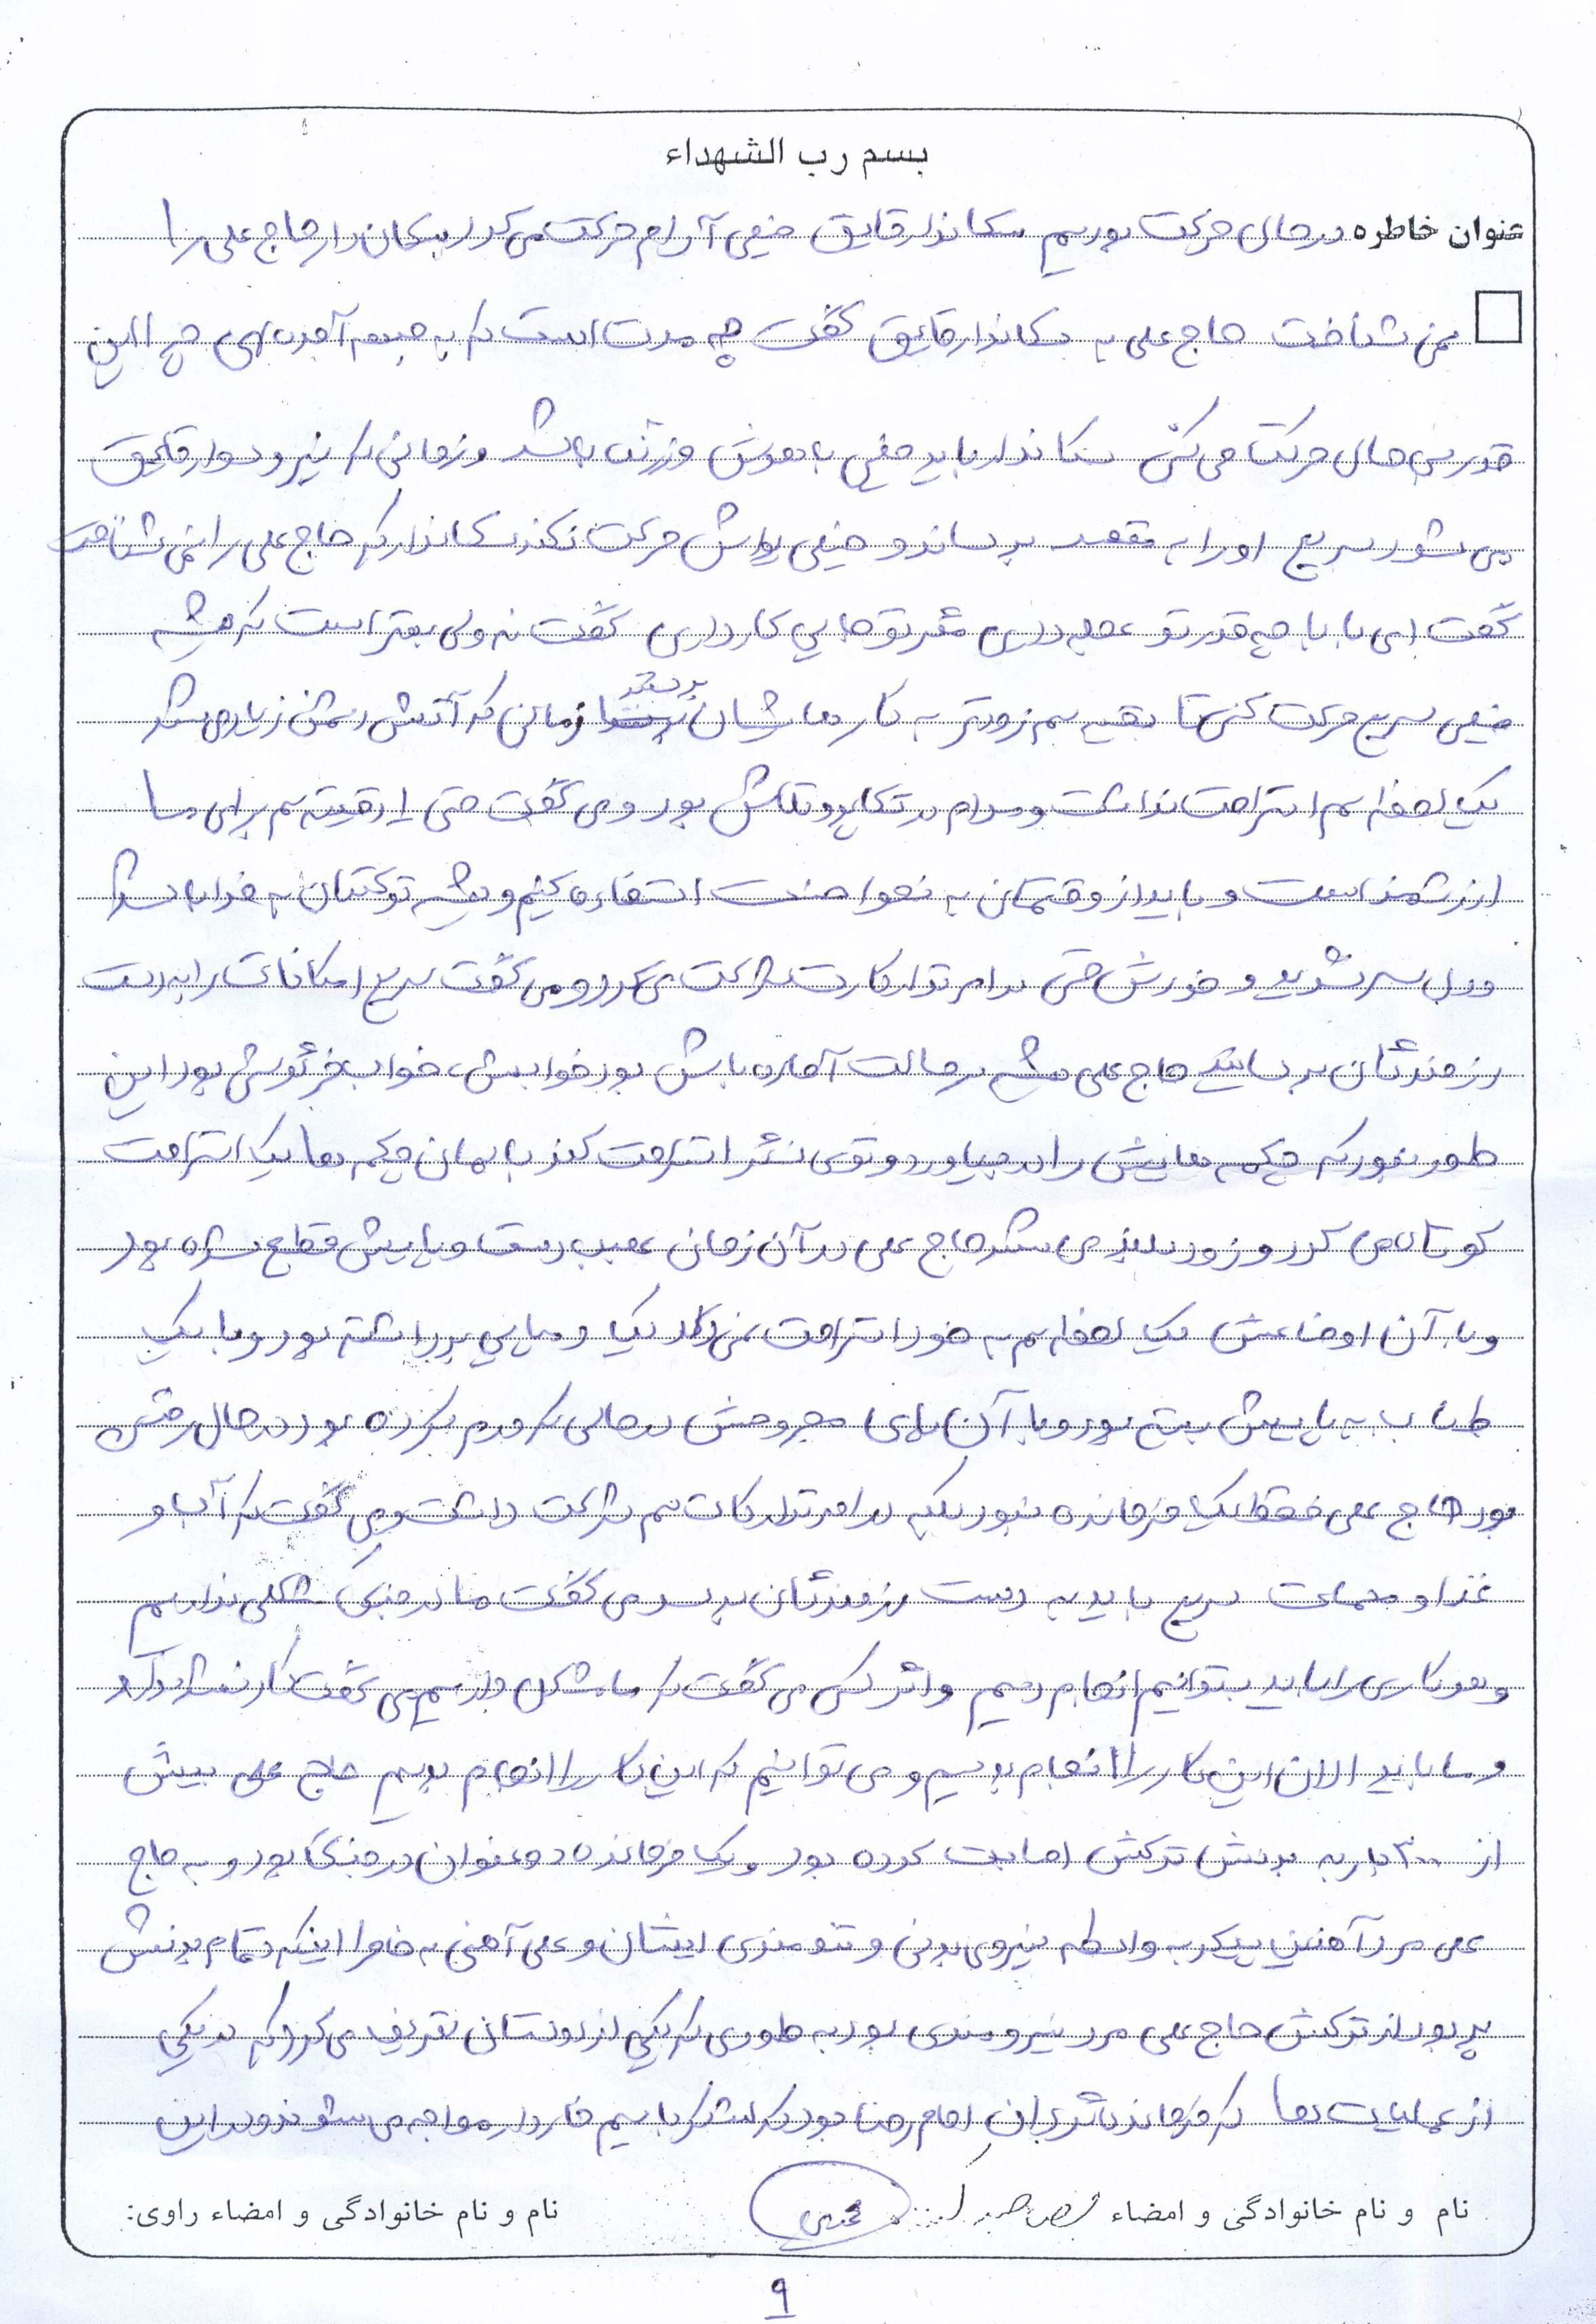 بسم رب الشهداء
عنوان خاطره در حال حرکت بودیم سکاندار قایق خیلی آرام حرکت می کرد سکان دار حاج علی را
نمی شناخت حاج علی به سکاندار قایق گفت چه مدت است که به جبهه آمده ای چرا این
قدر بی حال حرکت می کنی سکاندار باید خیلی باهوش و زرنگ باشد و زمانی که نیرو سوار قایق
می شود سریع او را به مقصد برساند و خیلی یواش حرکت نکند سکاندار که حاج علی را نمی شناخت
گفت ای بابا چه قدر تو عجله داری مگر تو جایی کار داری گفت نه ولی بهتر است که همیشه
خیلی سریع حرکت کنی تا بقیه هم زودتر به کارهایشان برسند زمانی که آتش دشمن زیاد می شد
یک لحظه هم استراحت نداشت و مدام در تکاپو و تلاش بود و می گفت حتی ۱ دقیقه هم برای ما
ارزشمند است و باید از وقتمان به نحو احسنت استفاده کنیم و همیشه توکلتان به خدا باشد
و دل سرد نشوید و خودش حتی در امر تدارکات شرکت می کرد و می گفت سریع امکانات را به دست
رزمندگان برسانید حاج علی همیشه در حالت آماده باش بود خوابش، خواب خرگوش بود این
طور نبود که چکمه هایش را در بیاورد و توی سنگر استراحت کند با همان چکمه ها یک استراحت
کوتاه می کرد و زود بلند می شد حاج علی در آن زمان عصب دست و پایش قطع شده بود
و با آن اوضاعش یک لحظه هم به خود استراحت نمی داد یک دمپایی برداشته بود و با یک
طناب به پایش بسته بود و با آن پای مجروحش در حالی که ورم کرده بود در حال رفتن
بود حاج علی فقط یک فرمانده نبود بلکه در امر تدارکات هم شرکت داشت و می گفت که آب و
غذا و مهمات سریع باید به دست رزمندگان برسد می گفت ما در جنگ مشکلی نداریم
و هر کاری را باید بتوانیم انجام دهیم و اگر کسی می گفت که ما مشکل داریم می گفت کار نشد ندارد
و ما باید الان این کار را انجام بدهیم و می توانیم که این کار را انجام بدهیم حاج علی بیش
از ۳۰۰ بار به بدنش ترکش اصابت کرده بود و یک فرمانده دو عنوان در جنگ بود و به حاج
علی مرد آهنین پیکر به واسطه نیروی بدنی و تنومندی ایشان و علی آهنی به خاطر اینکه تمام بدنش
پر بود از ترکش حاج علی مرد نیرومندی بود به طوری که یکی از دوستان تعریف می کرد که در یکی
از عملیات ها که فرمانده گردان امام رضا بود که لشکر با سیم خاردار مواجه می شوند و در این
نام و نام خانوادگی و امضاء
نام و نام خانوادگی و امضاء راوی:
۹